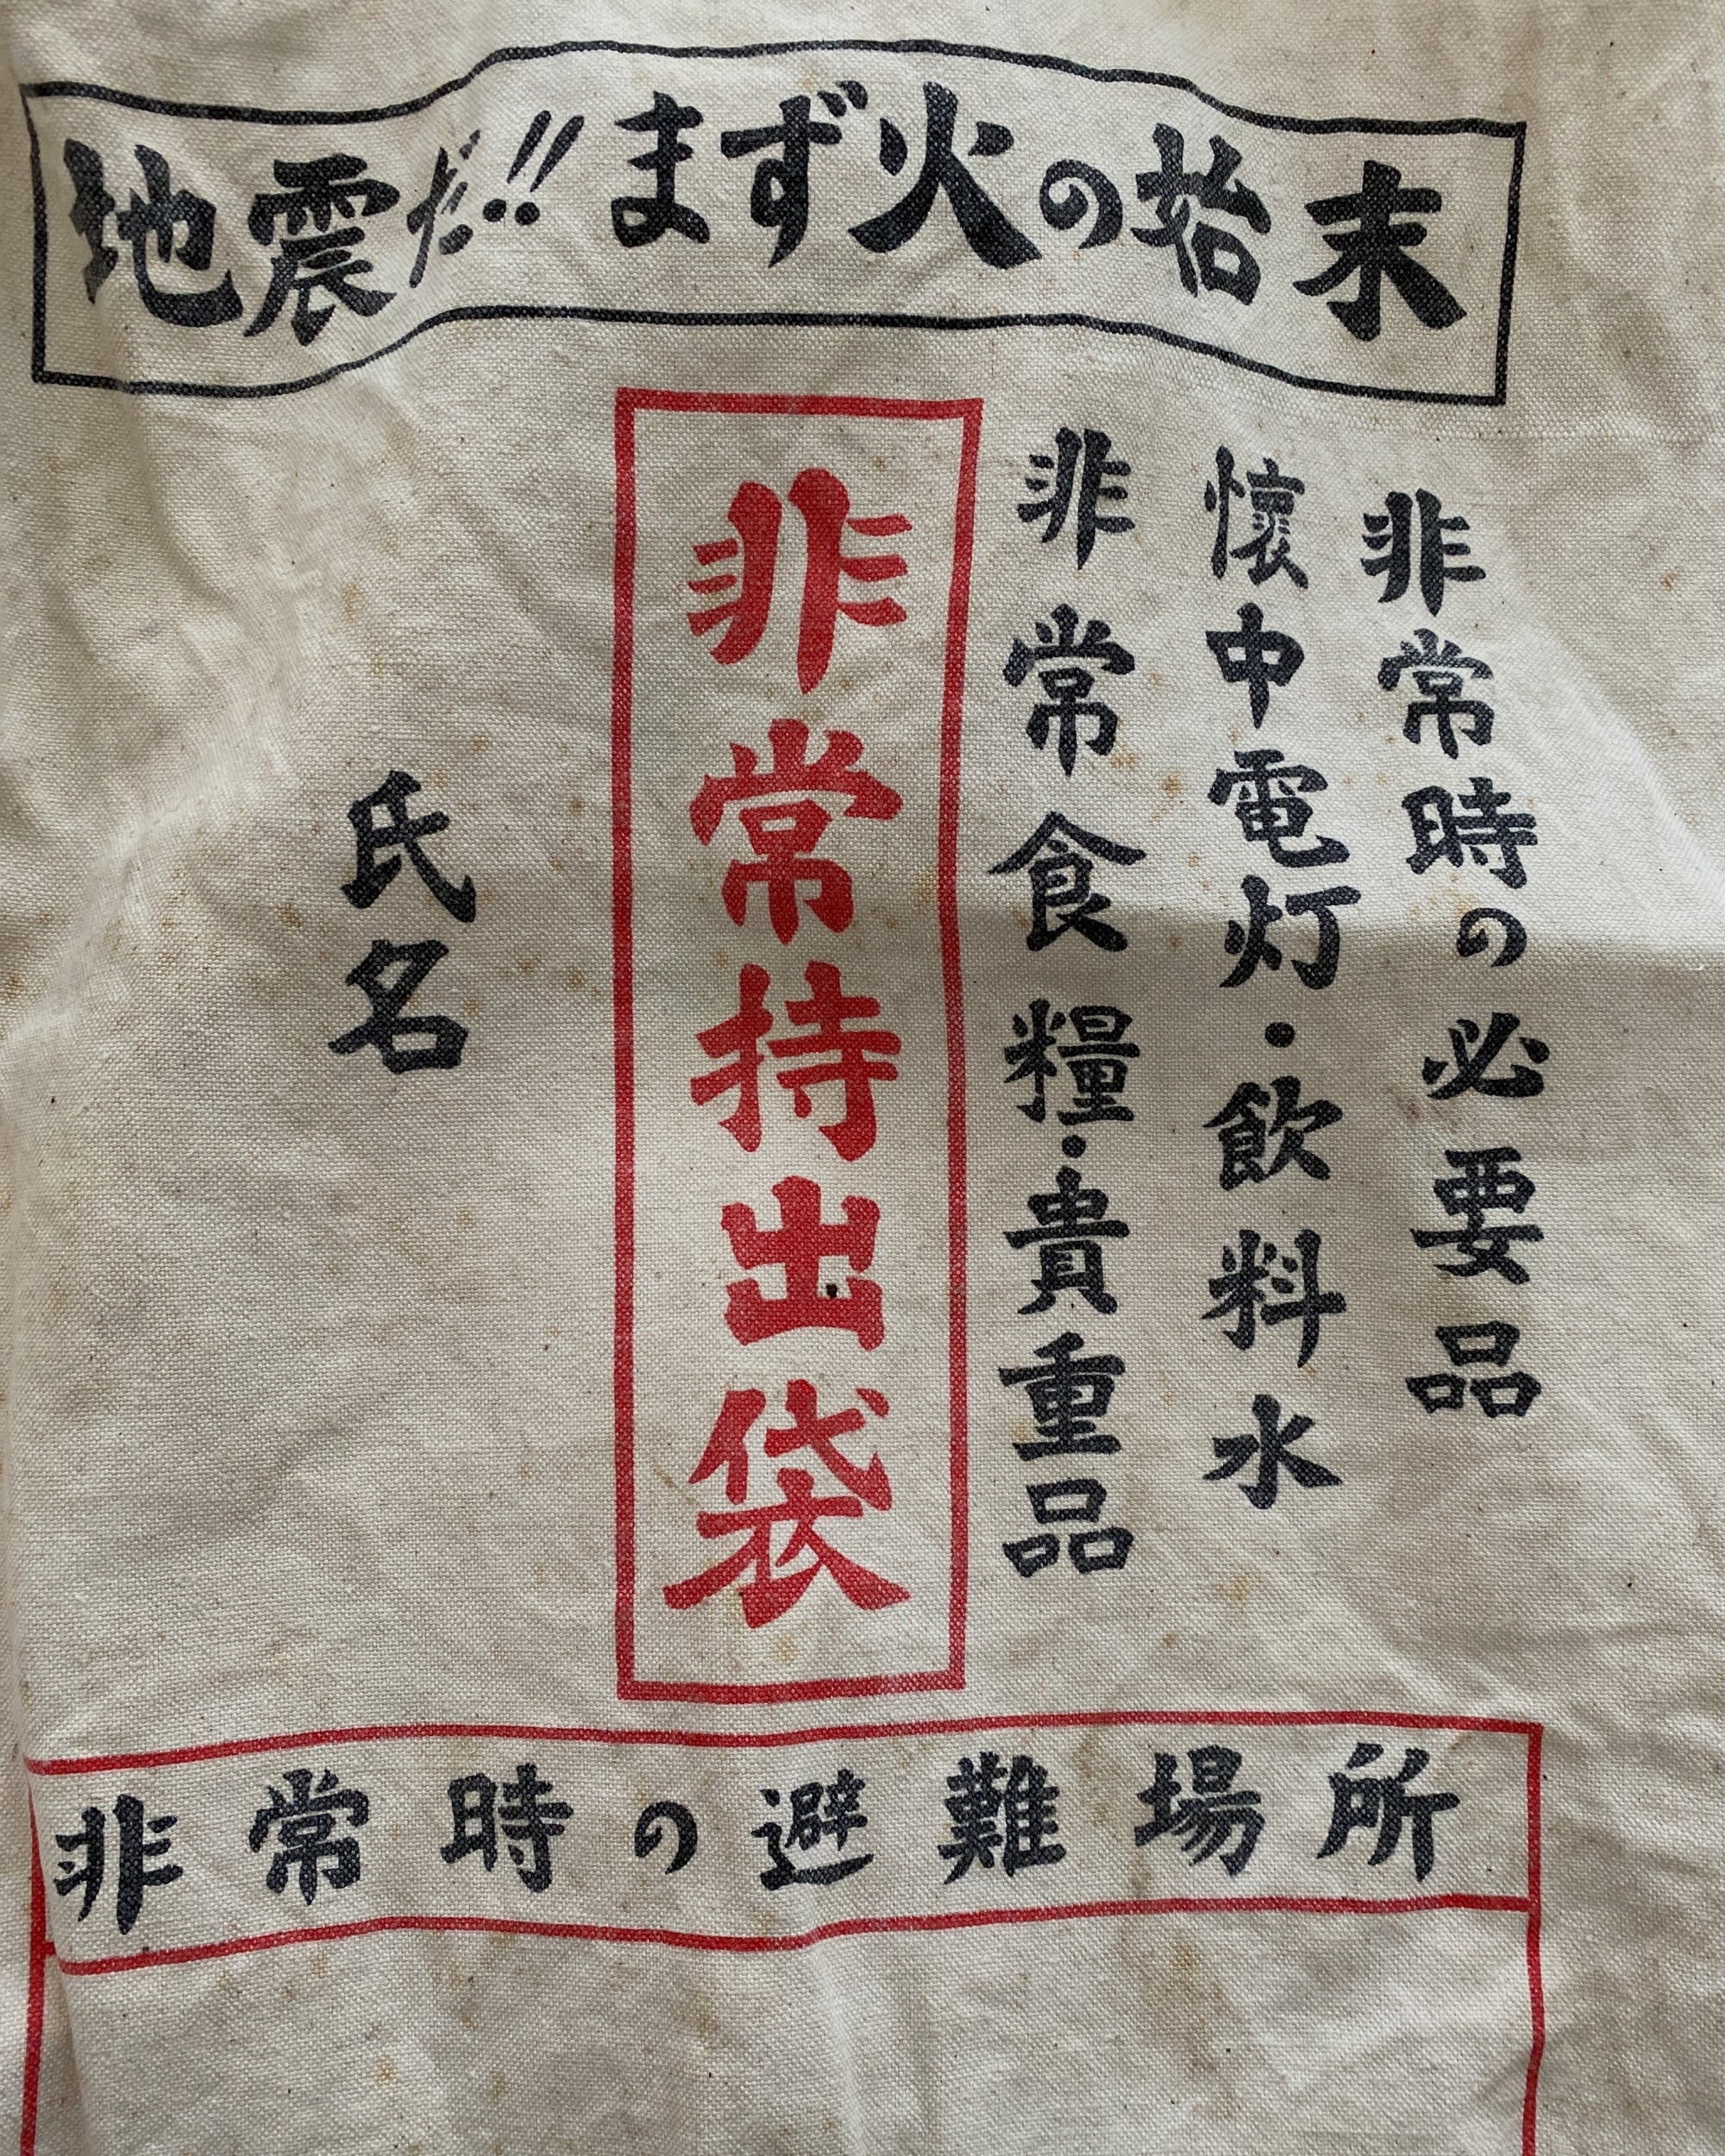 地震だ!!まず火の始末
非常時の必要品
懐中電灯・飲料水
非常食糧・貴重品
非常持出袋
氏名
非常時の避難場所